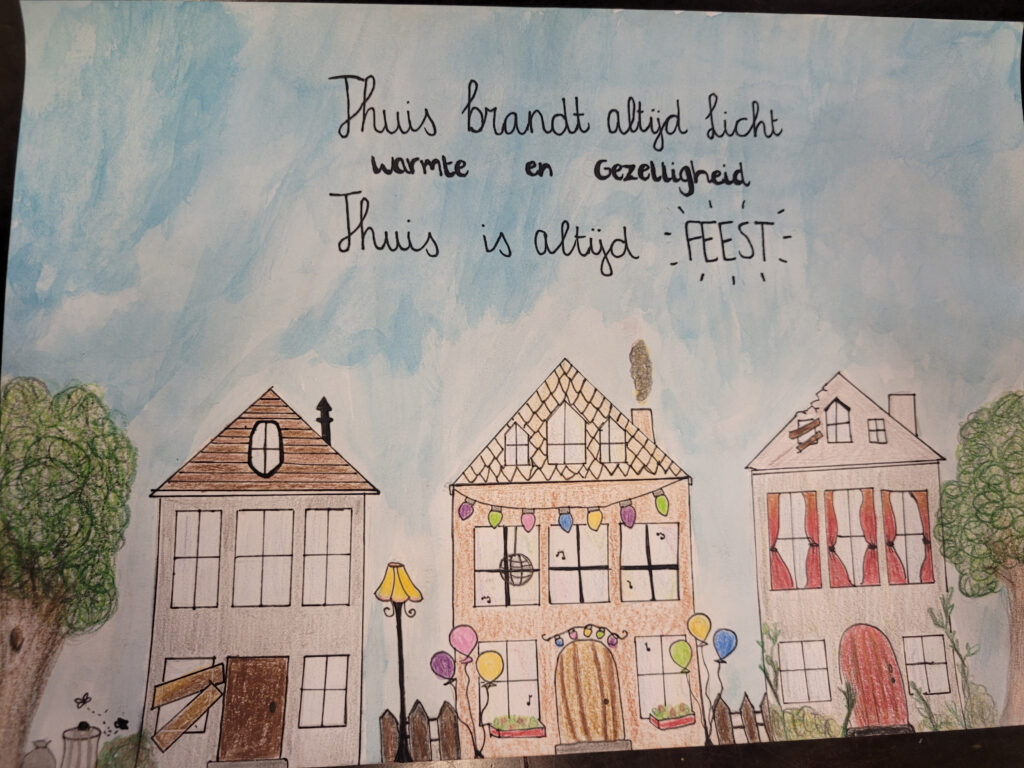 Thuis brandt altijd licht
warmte en Gezelligheid
Thuis is altijd FEEST